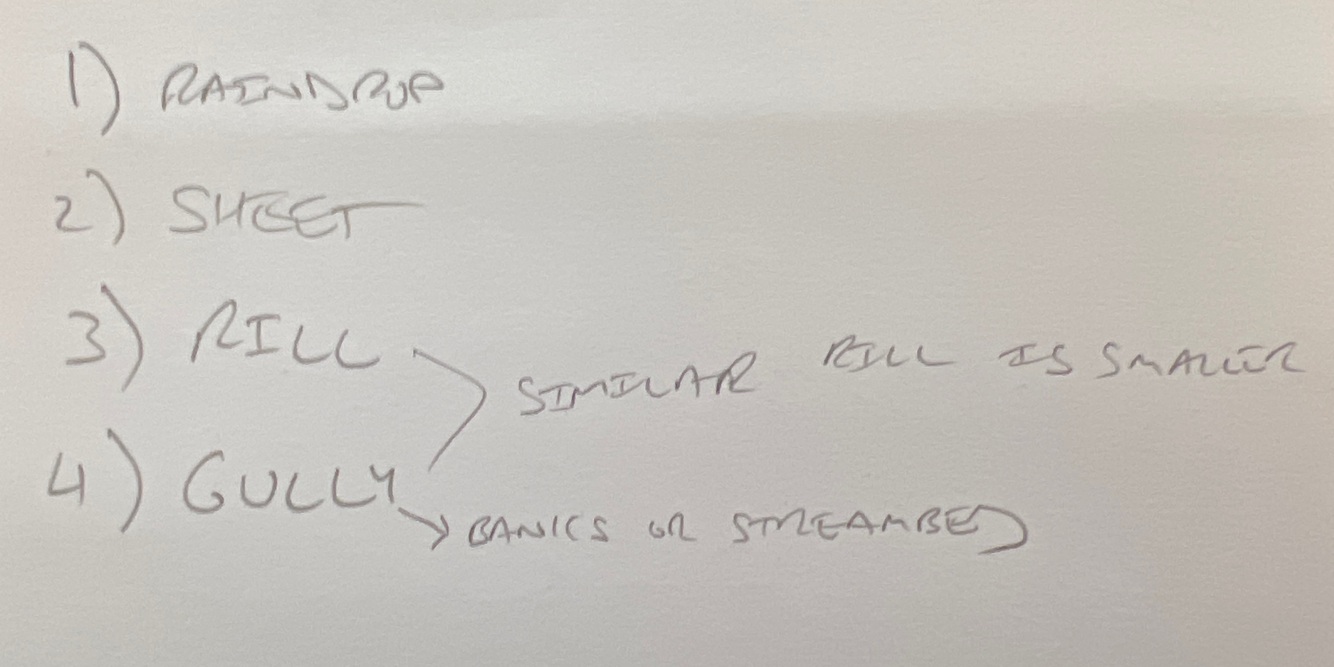 1) RAINDROP
2) SHEET
3) RILL
SIMILAR RILL IS SMALLER
4) GULLY
BANKS OR STREAMBED